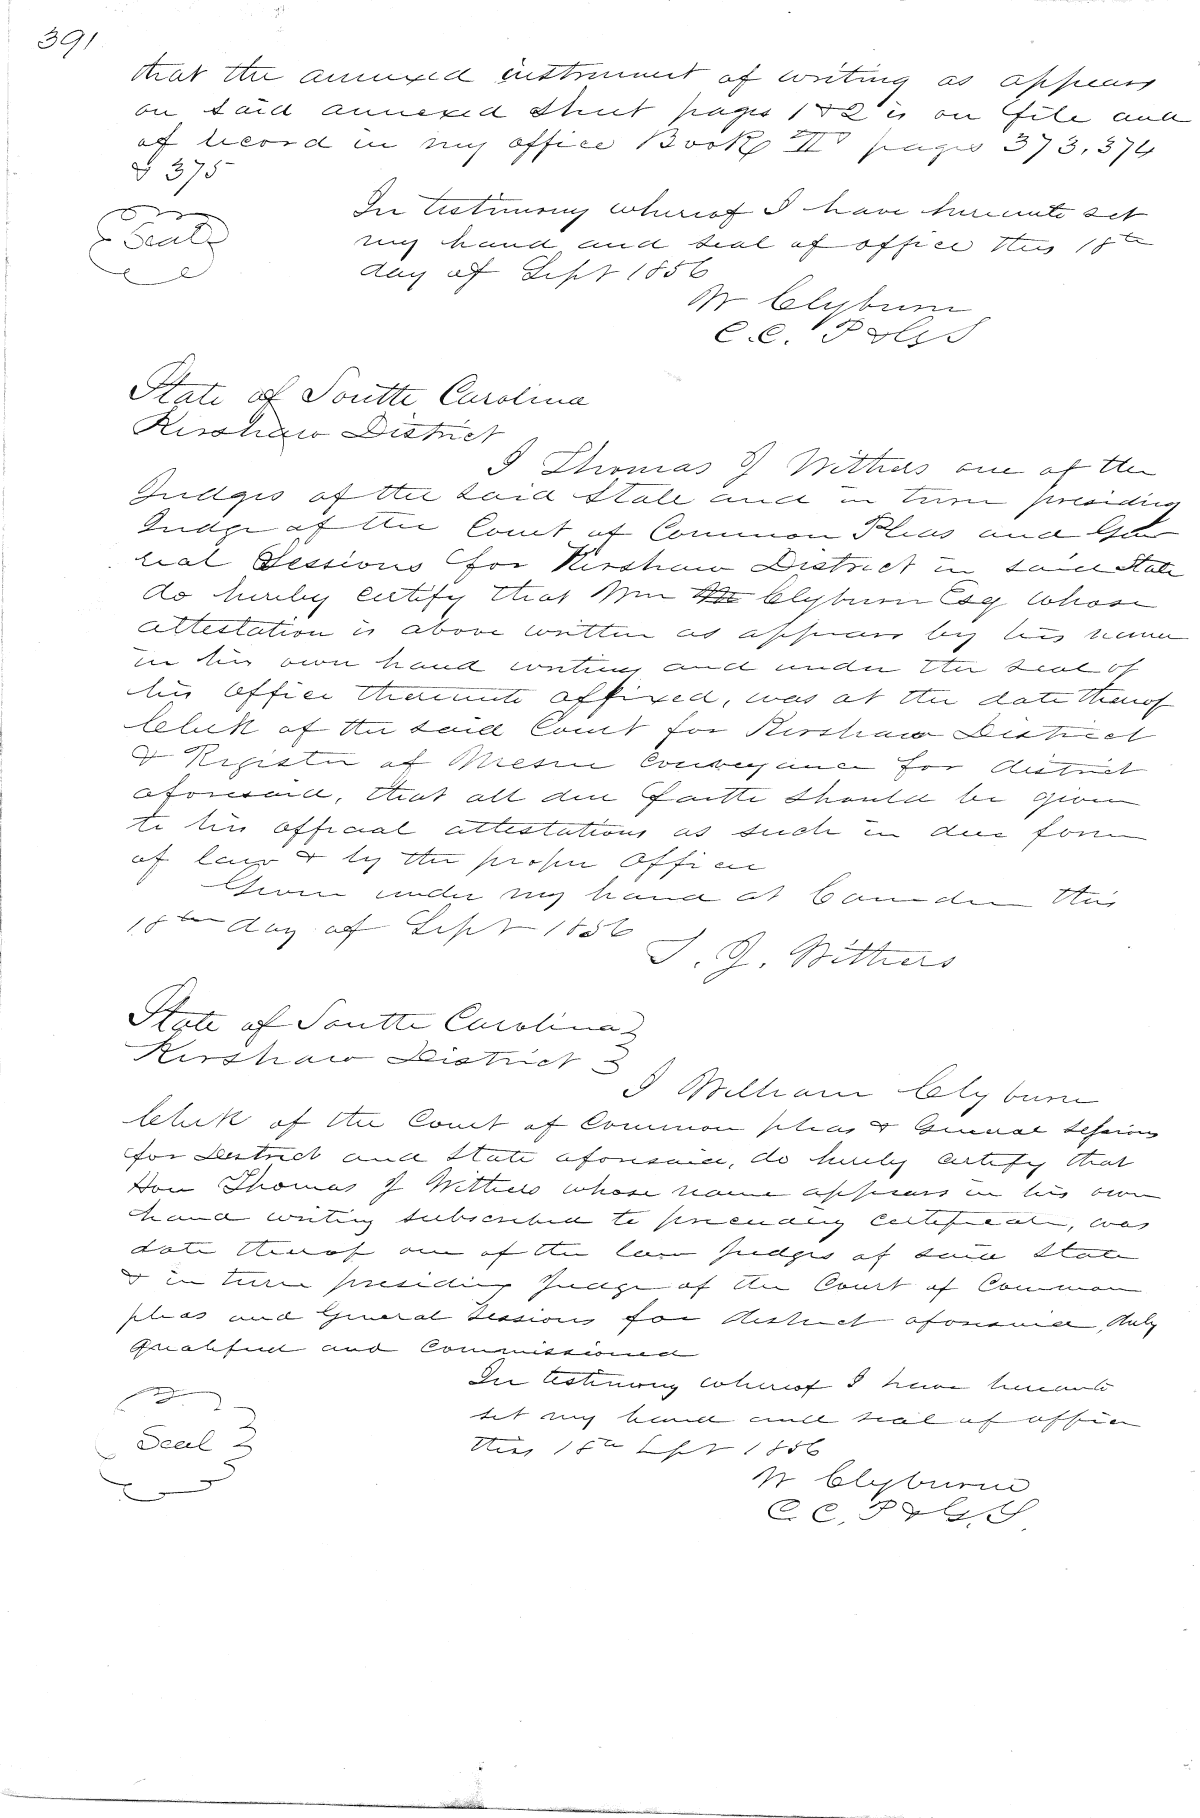 391
that the annexed instrument of writing as appears
on said annexed sheet pages 1 & 2 is on file and
of record in my office Book "II" pages 373, 374
& 375
Seal
In testimony whereof I have hereunto set
my hand and seal of office this 18th
day of Sept 1856
W Clyburn
C.C. P & G S
State of South Carolina
Kershaw District
I Thomas J Withers one of the
Judges of the said State and in turn presiding
Judge of the Court of Common Pleas and Gen
eral Sessions for Kershaw District in said State
do hereby certify that Wm Clyburn Esq whose
attestation is above written as appears by his name
in his own hand writing and under the seal of
his office thereunto affixed, was at the date thereof
Clerk of the said Court for Kershaw District
& Register of Mesne Conveyance for district
aforesaid, that all due faith should be given
to his official attestations as such in due form
of law & by the proper officer
Given under my hand at Camden this
18th day of Sept 1856
T. J. Withers
State of South Carolina
Kershaw District
I William Clyburn
Clerk of the Court of Common pleas & General Sessions
for District and State aforesaid, do hereby certify that
Hon Thomas J Withers whose name appears in his own
hand writing subscribed to preceding certificate, was
date thereof one of the law Judges of said State
& in turn presiding Judge of the Court of Common
pleas and General Sessions for district aforesaid, duly
qualified and commissioned
In testimony whereof I have hereunto
set my hand and seal of office
this 18th Sept 1856
Seal
W Clyburn
C. C. P & G. S